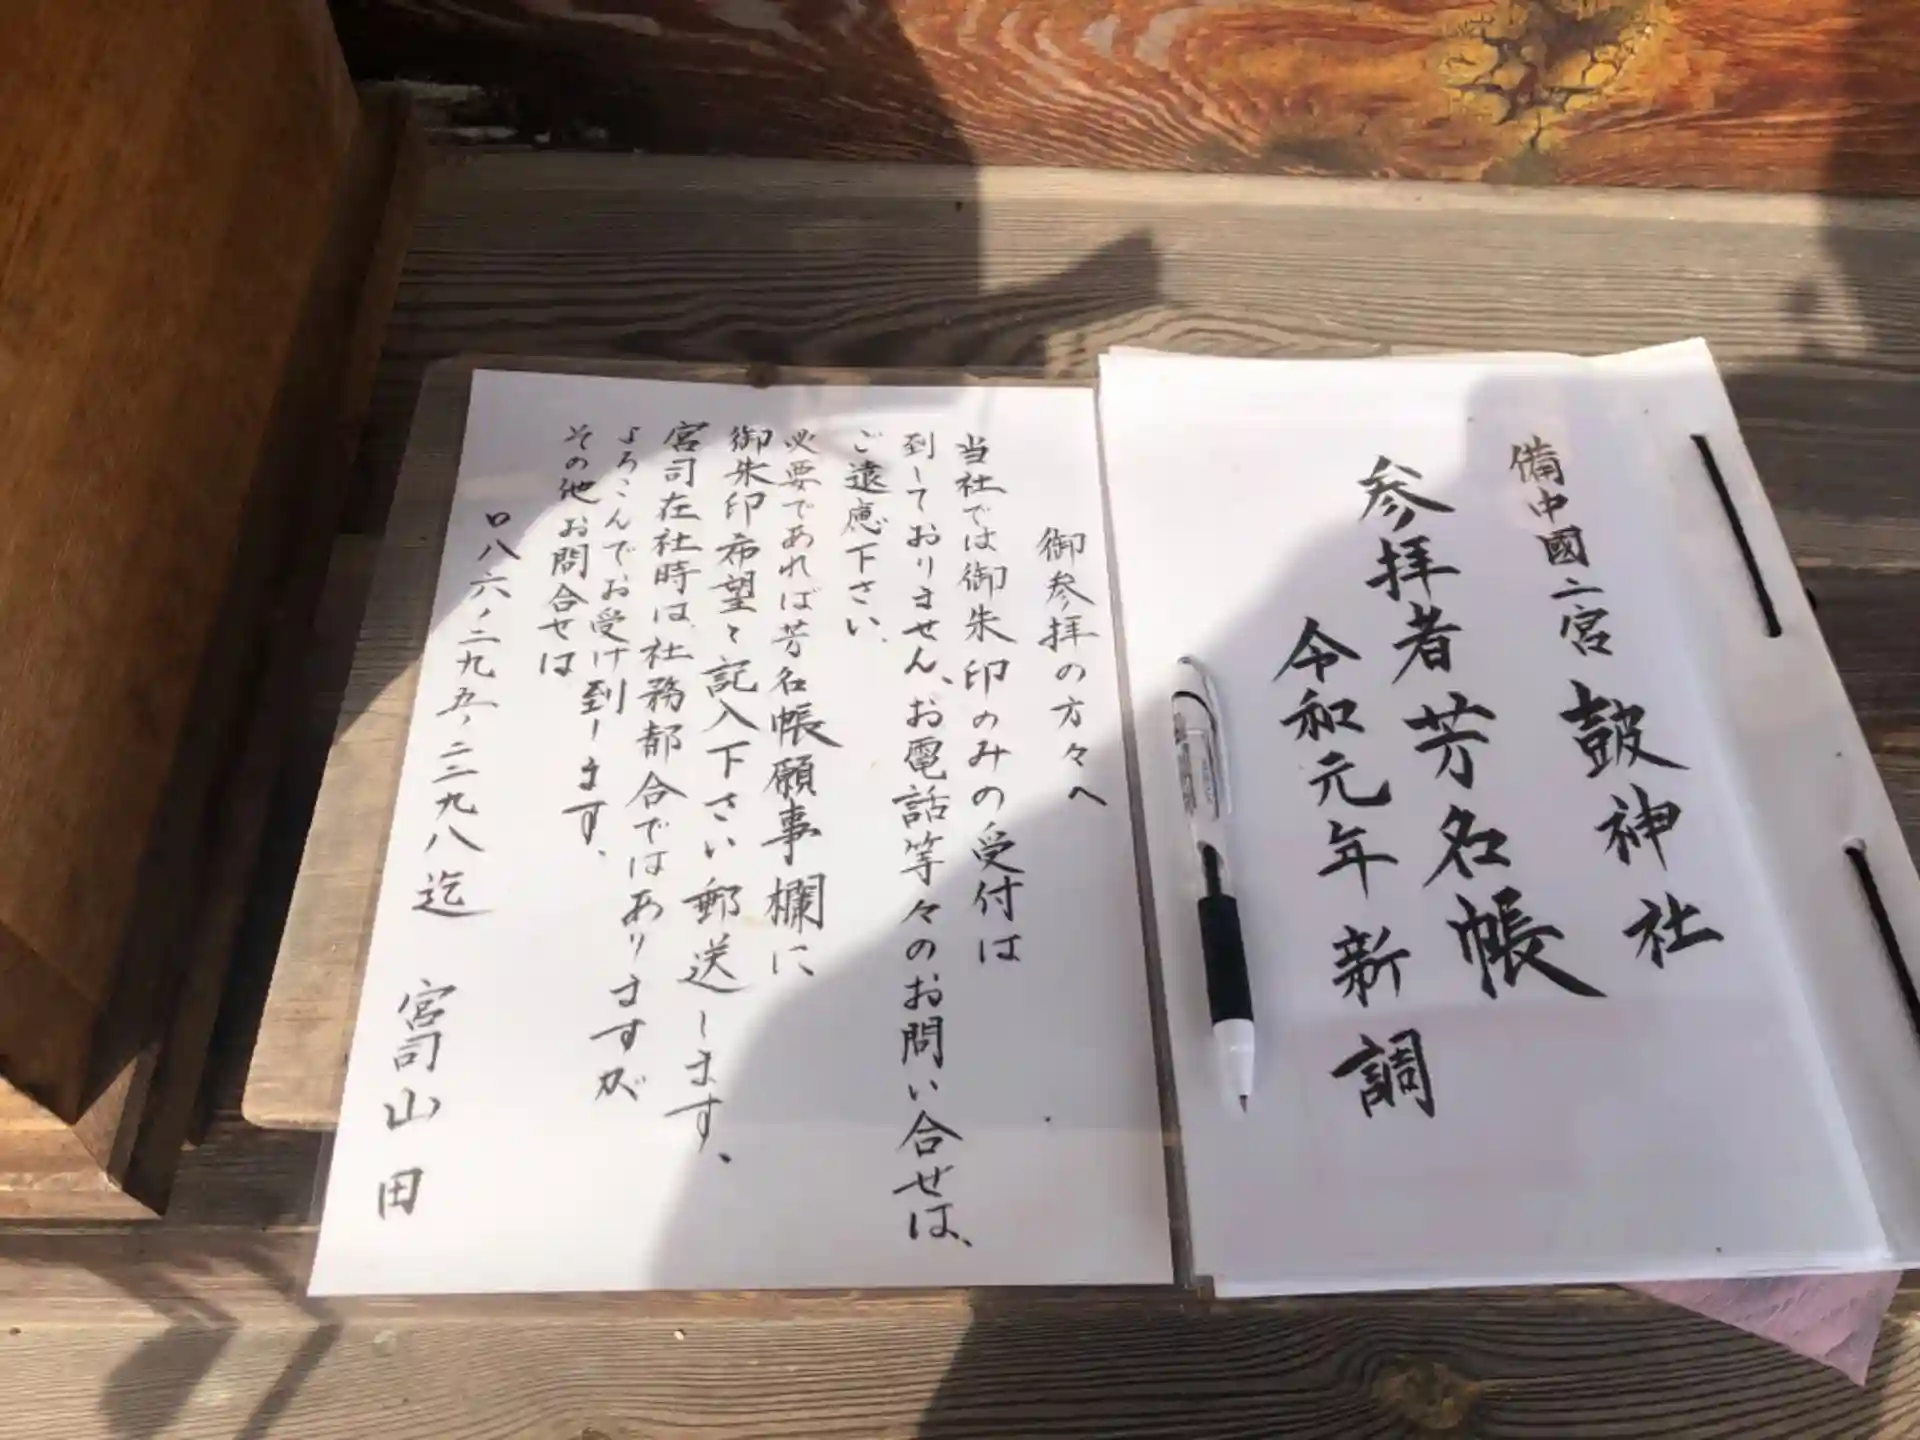 備中國二宮 鼓神社
参拝者芳名帳
令和元年新調
御参拝の方々へ
当社では御朱印のみの受付は
到しておりません、お電話等々のお問い合せは、
ご遠慮下さい、
必要であれば芳名帳願事欄に
御朱印希望と記入下さい郵送します、
宮司在社時は、社務都合ではありますが
よろこんでお受け到します、
その他お問合せは
〇八六ノ二九五ノ二二九八迄 宮司山田